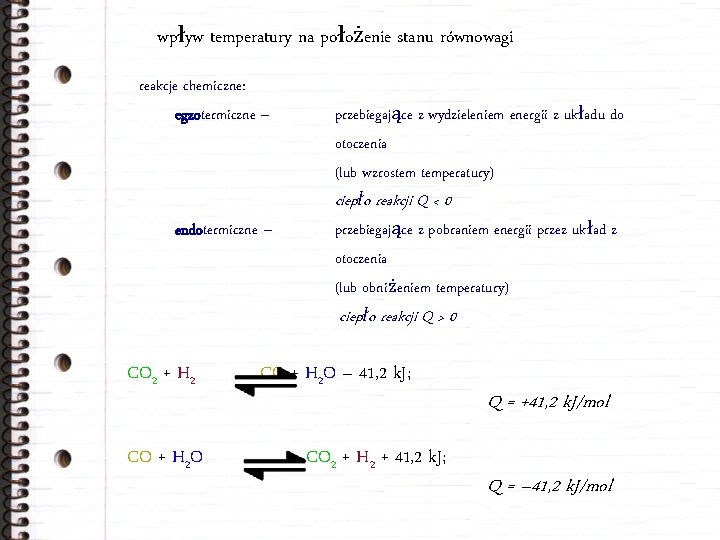 wpływ temperatury na położenie stanu równowagi
reakcje chemiczne:
egzotermiczne – przebiegające z wydzieleniem energii z układu do
otoczenia
(lub wzrostem temperatury)
ciepło reakcji Q < 0
endotermiczne – przebiegające z pobraniem energii przez układ z
otoczenia
(lub obniżeniem temperatury)
ciepło reakcji Q > 0
CO2 + H2 ⇌ CO + H2O – 41,2 kJ;
Q = +41,2 kJ/mol
CO + H2O ⇌ CO2 + H2 + 41,2 kJ;
Q = –41,2 kJ/mol